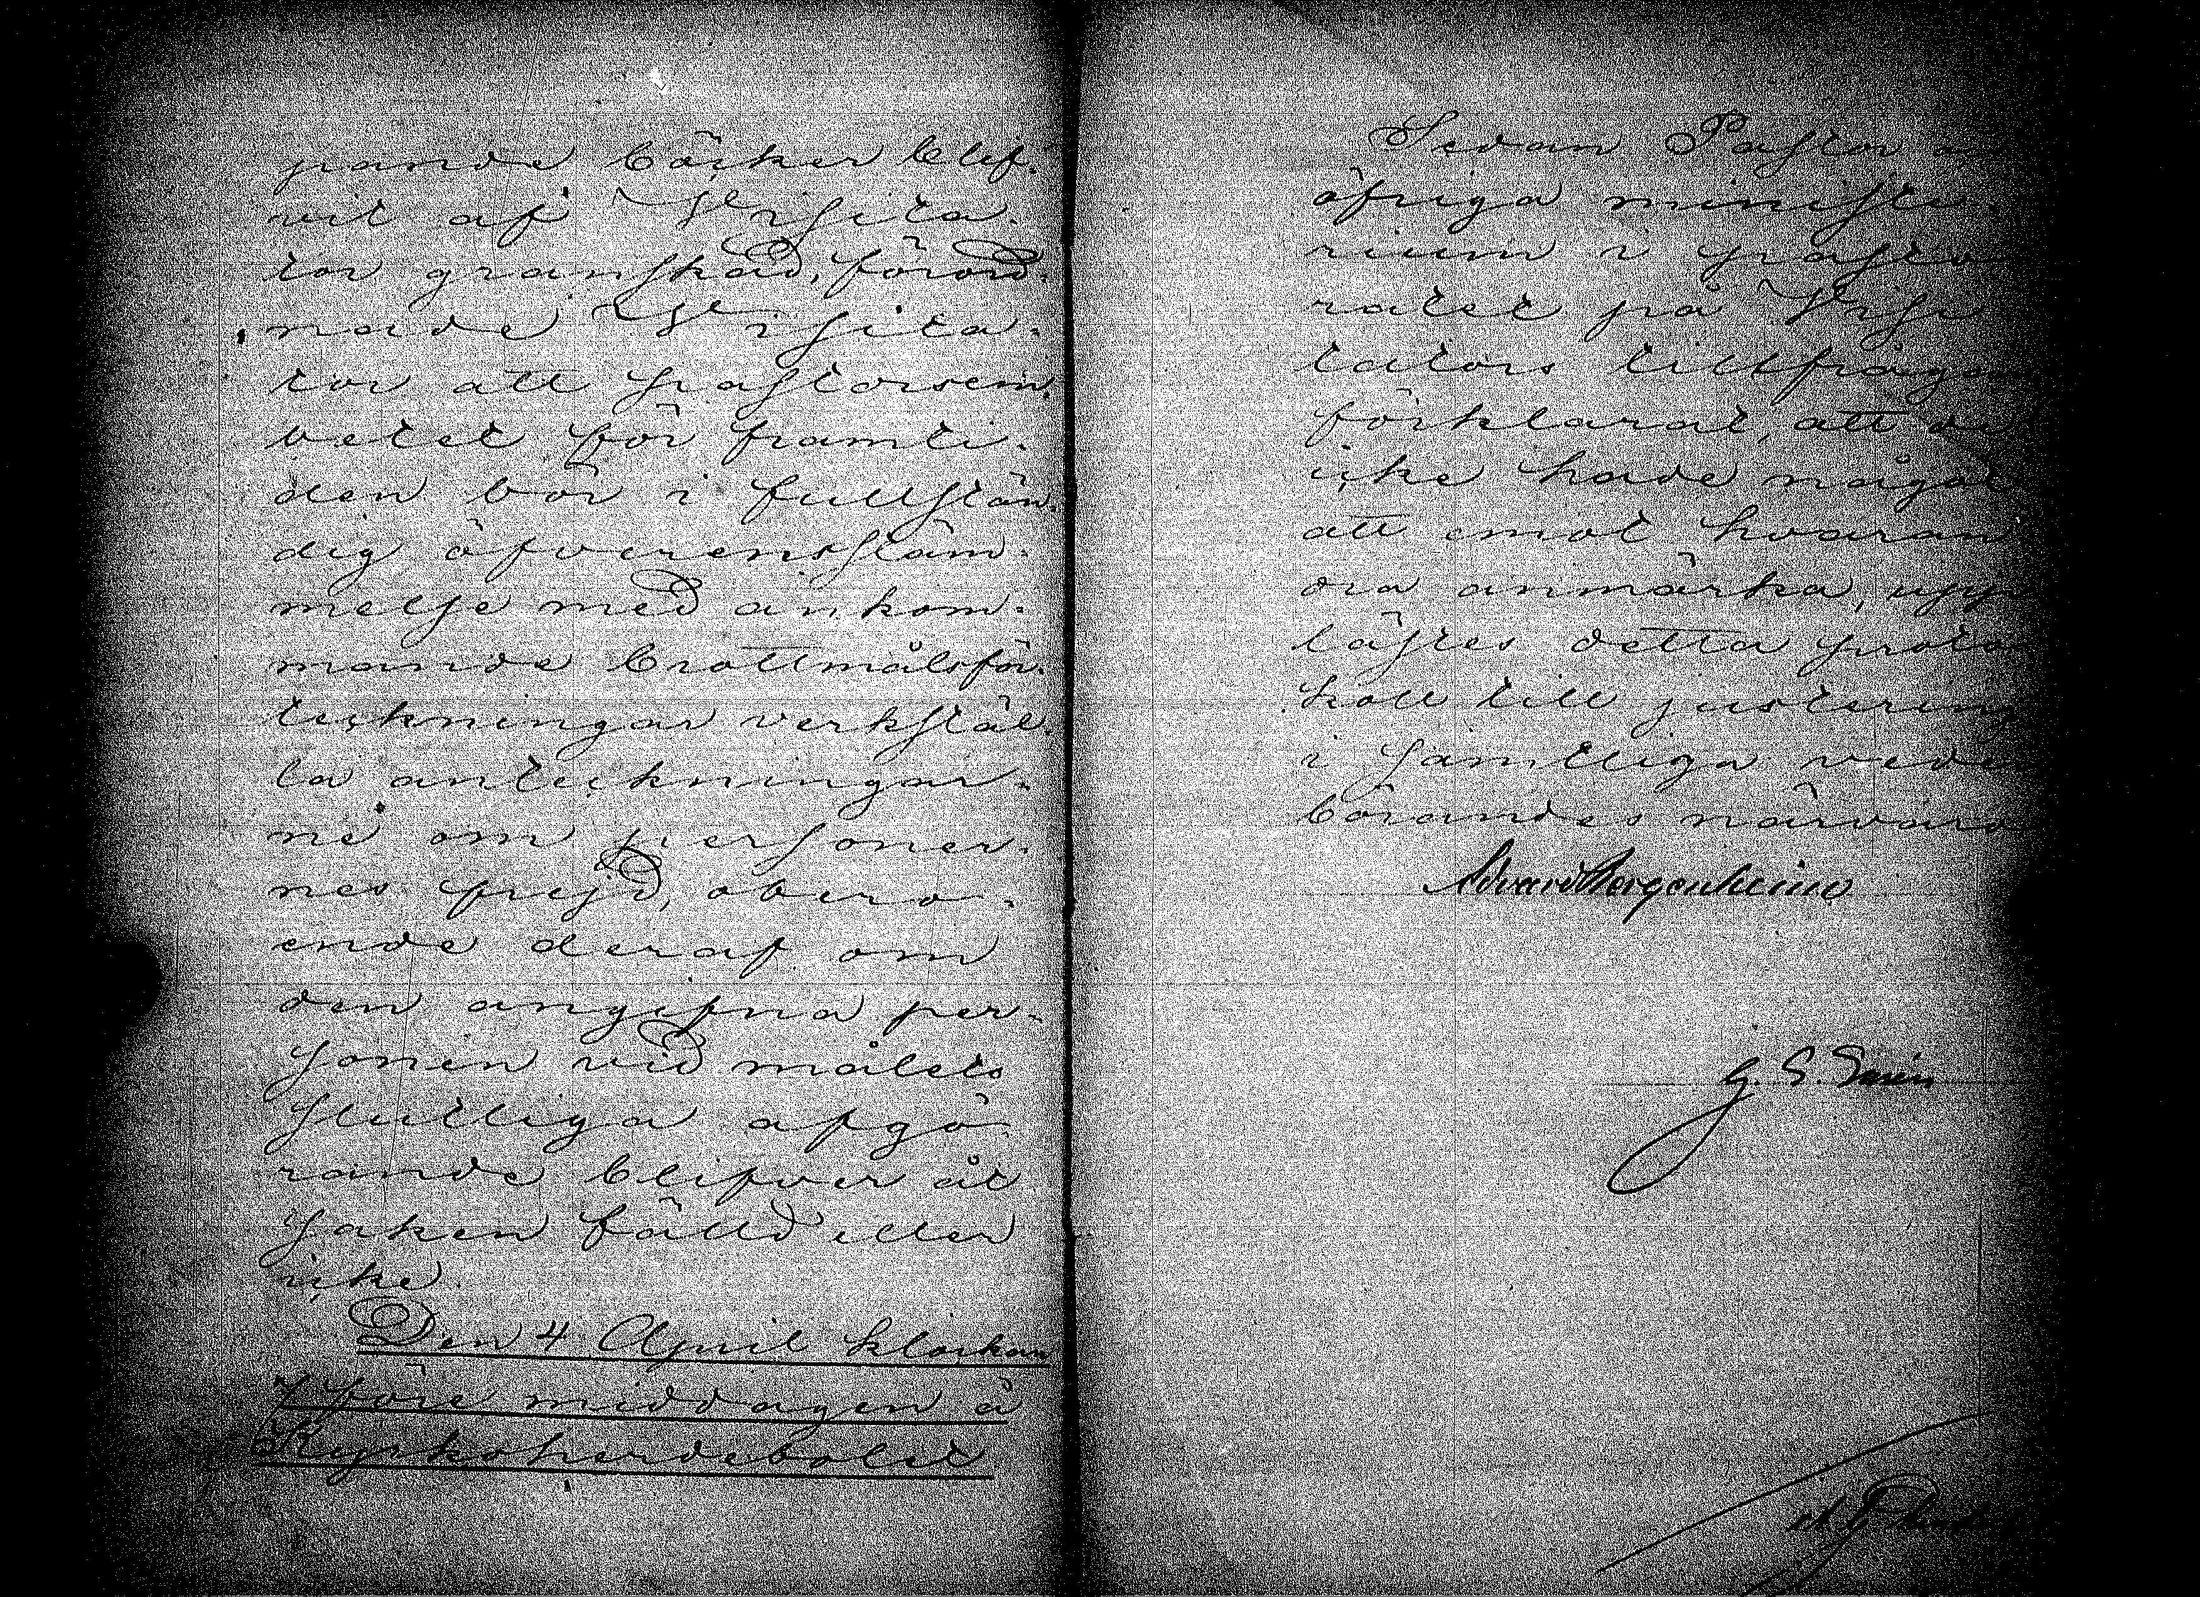 pande böcker blif-
vit af Visita-
tor granskad, förord-
nade Visita-
tor att pastorsem-
betet för framti-
den bör i fullstän-
dig öfverensstäm-
melse med ankom-
mande brottmålsför-
teckningar verkstäl-
la anteckningar-
ne om personer-
nes frejd, obero-
ende deraf om
den angifna per-
sonen vid målets
slutliga afgö-
rande blifver åt
saken fälld eller
icke.
Den 4 April klockan
7 före middagen å
Kyrkoherdebolet
Sedan Pastor
öfriga ministe-
rium i pasto
ratet på Visi
tators tillfrågan
förklarat, att de
icke hade något
att emot hvaran
dra anmärka, upp
lästes detta proto
koll till justering
i samtliga vede
börandes närvaro
Edvard Bergenheim
G. S.